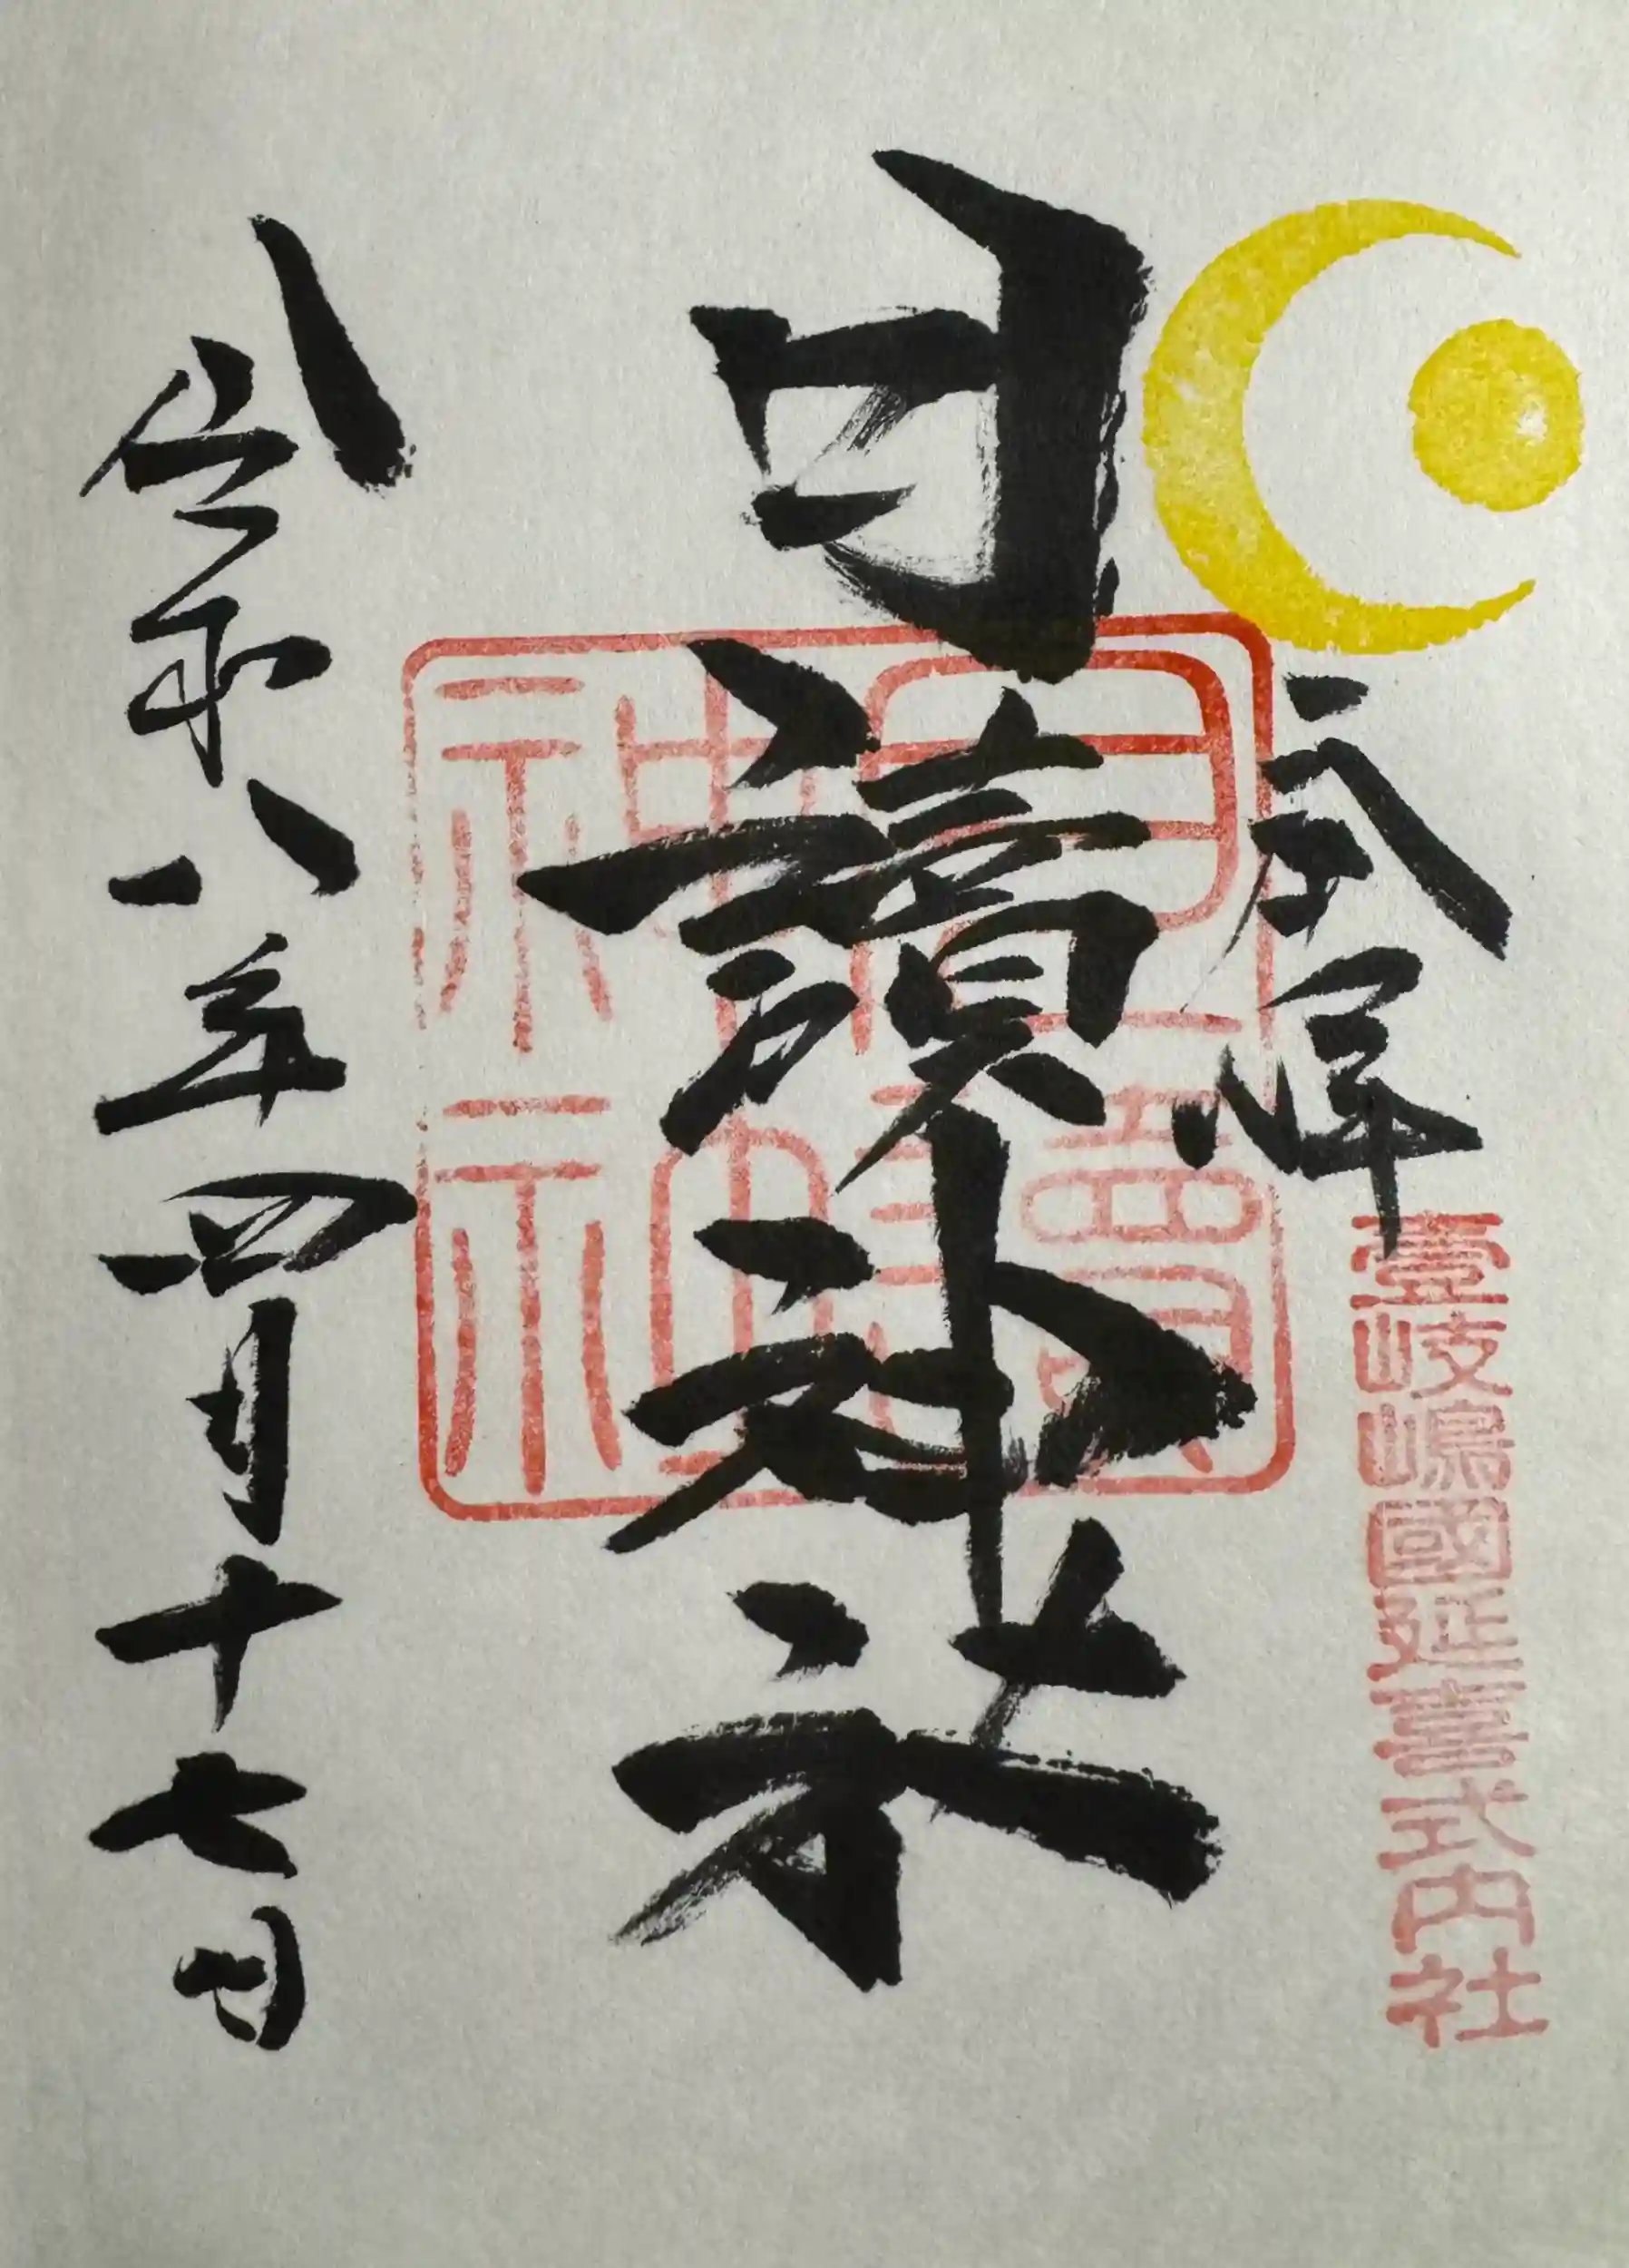 奉拝
壹岐嶋國延喜式内社
月讀神社
月讀
神
令和八年四月十七日